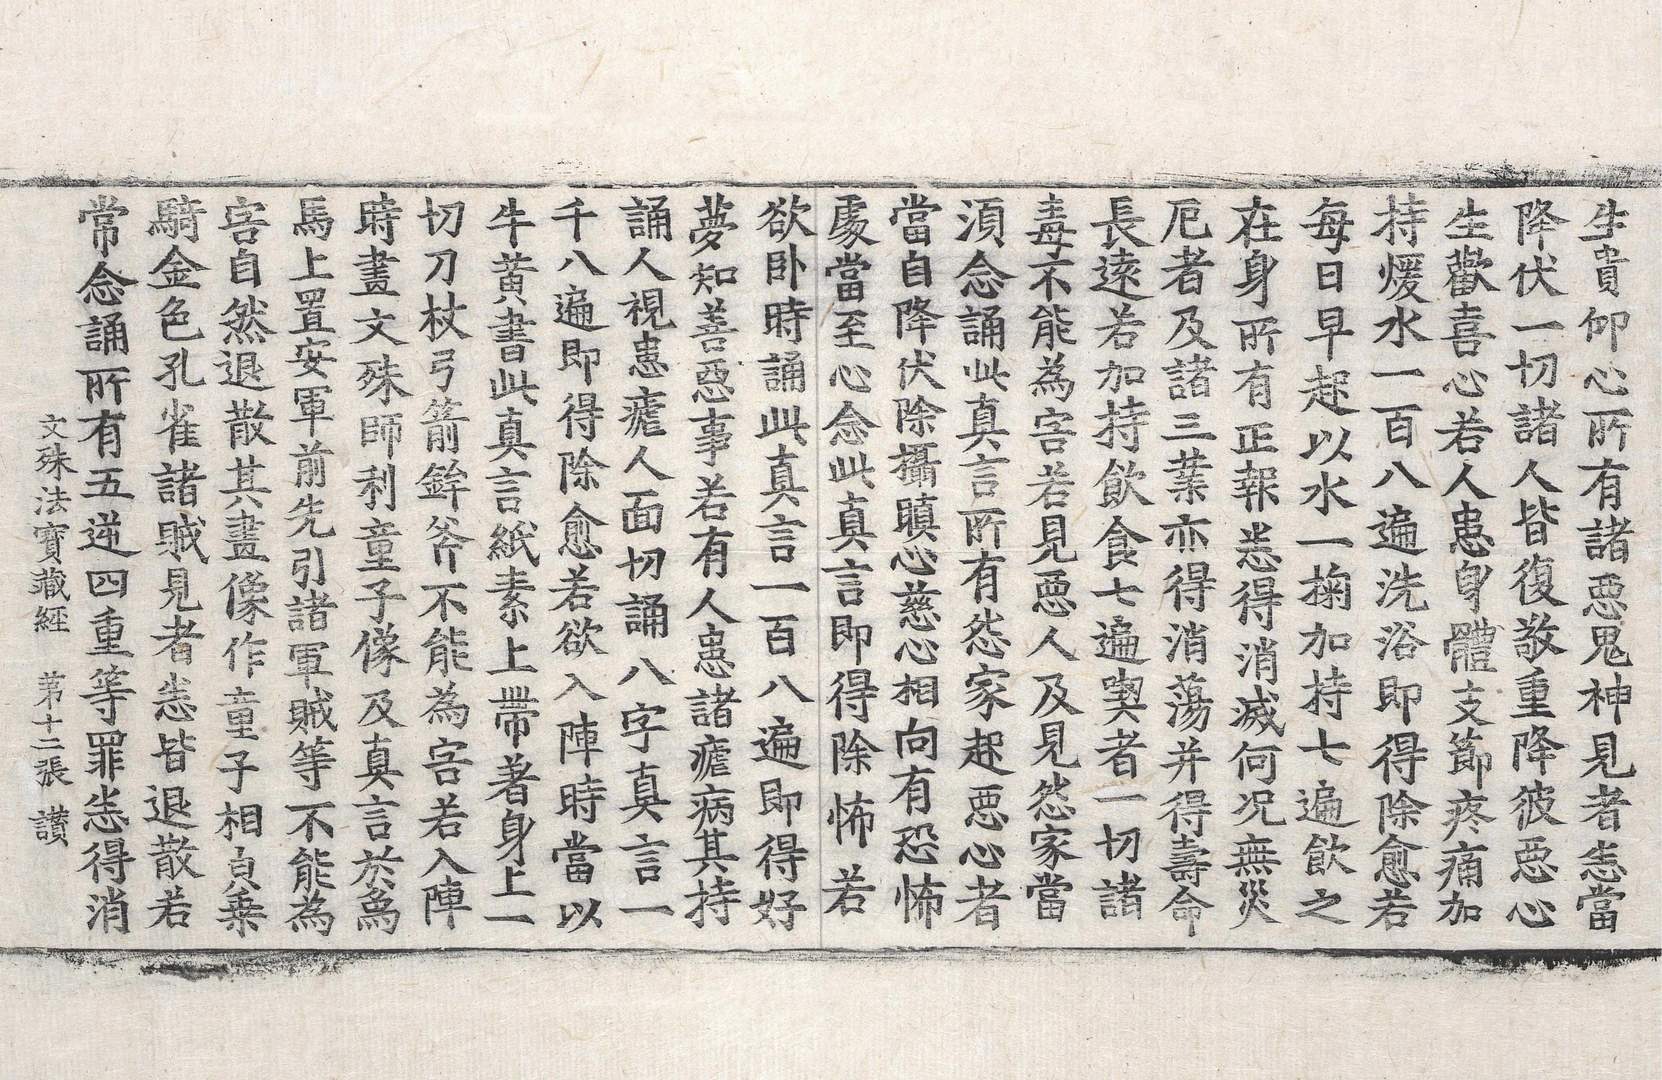 生貴仰心所有諸惡鬼神見者悉當
降伏一切諸人皆復敬重降彼惡心
生歡喜心若人患身體支節疼痛加
持煖水一百八遍洗浴即得除愈若
每日早起以水一掬加持七遍飲之
在身所有正報悉得消滅何況無災
厄者及諸三葉亦得消蕩并得壽命
長遠若加持飲食七遍喫者一切諸
毒不能為害若見惡人及見怨家當
湏念誦此真言所有怨家起惡心者
當自降伏除攝瞋心慈心相向有恐怖
處當至心念此真言即得除怖若
欲卧時誦此真言一百八遍即得好
夢知善惡事若有人患諸瘧病其持
誦人視患瘧人面切誦八字真言一
千八遍即得除愈若欲入陣時當以
牛黃書此真言紙素上帶著身上一
切刀杖弓箭鉾斧不能為害若入陣
時畫文殊師利童子像及真言於為
馬上置安軍前先引諸軍賊等不能為
害自然退散其畫像作童子相皃乗
騎金色孔雀諸賊見者悉皆退散若
常念誦所有五逆四重等罪悉得消
文殊法寶藏經 苐十二張 讃